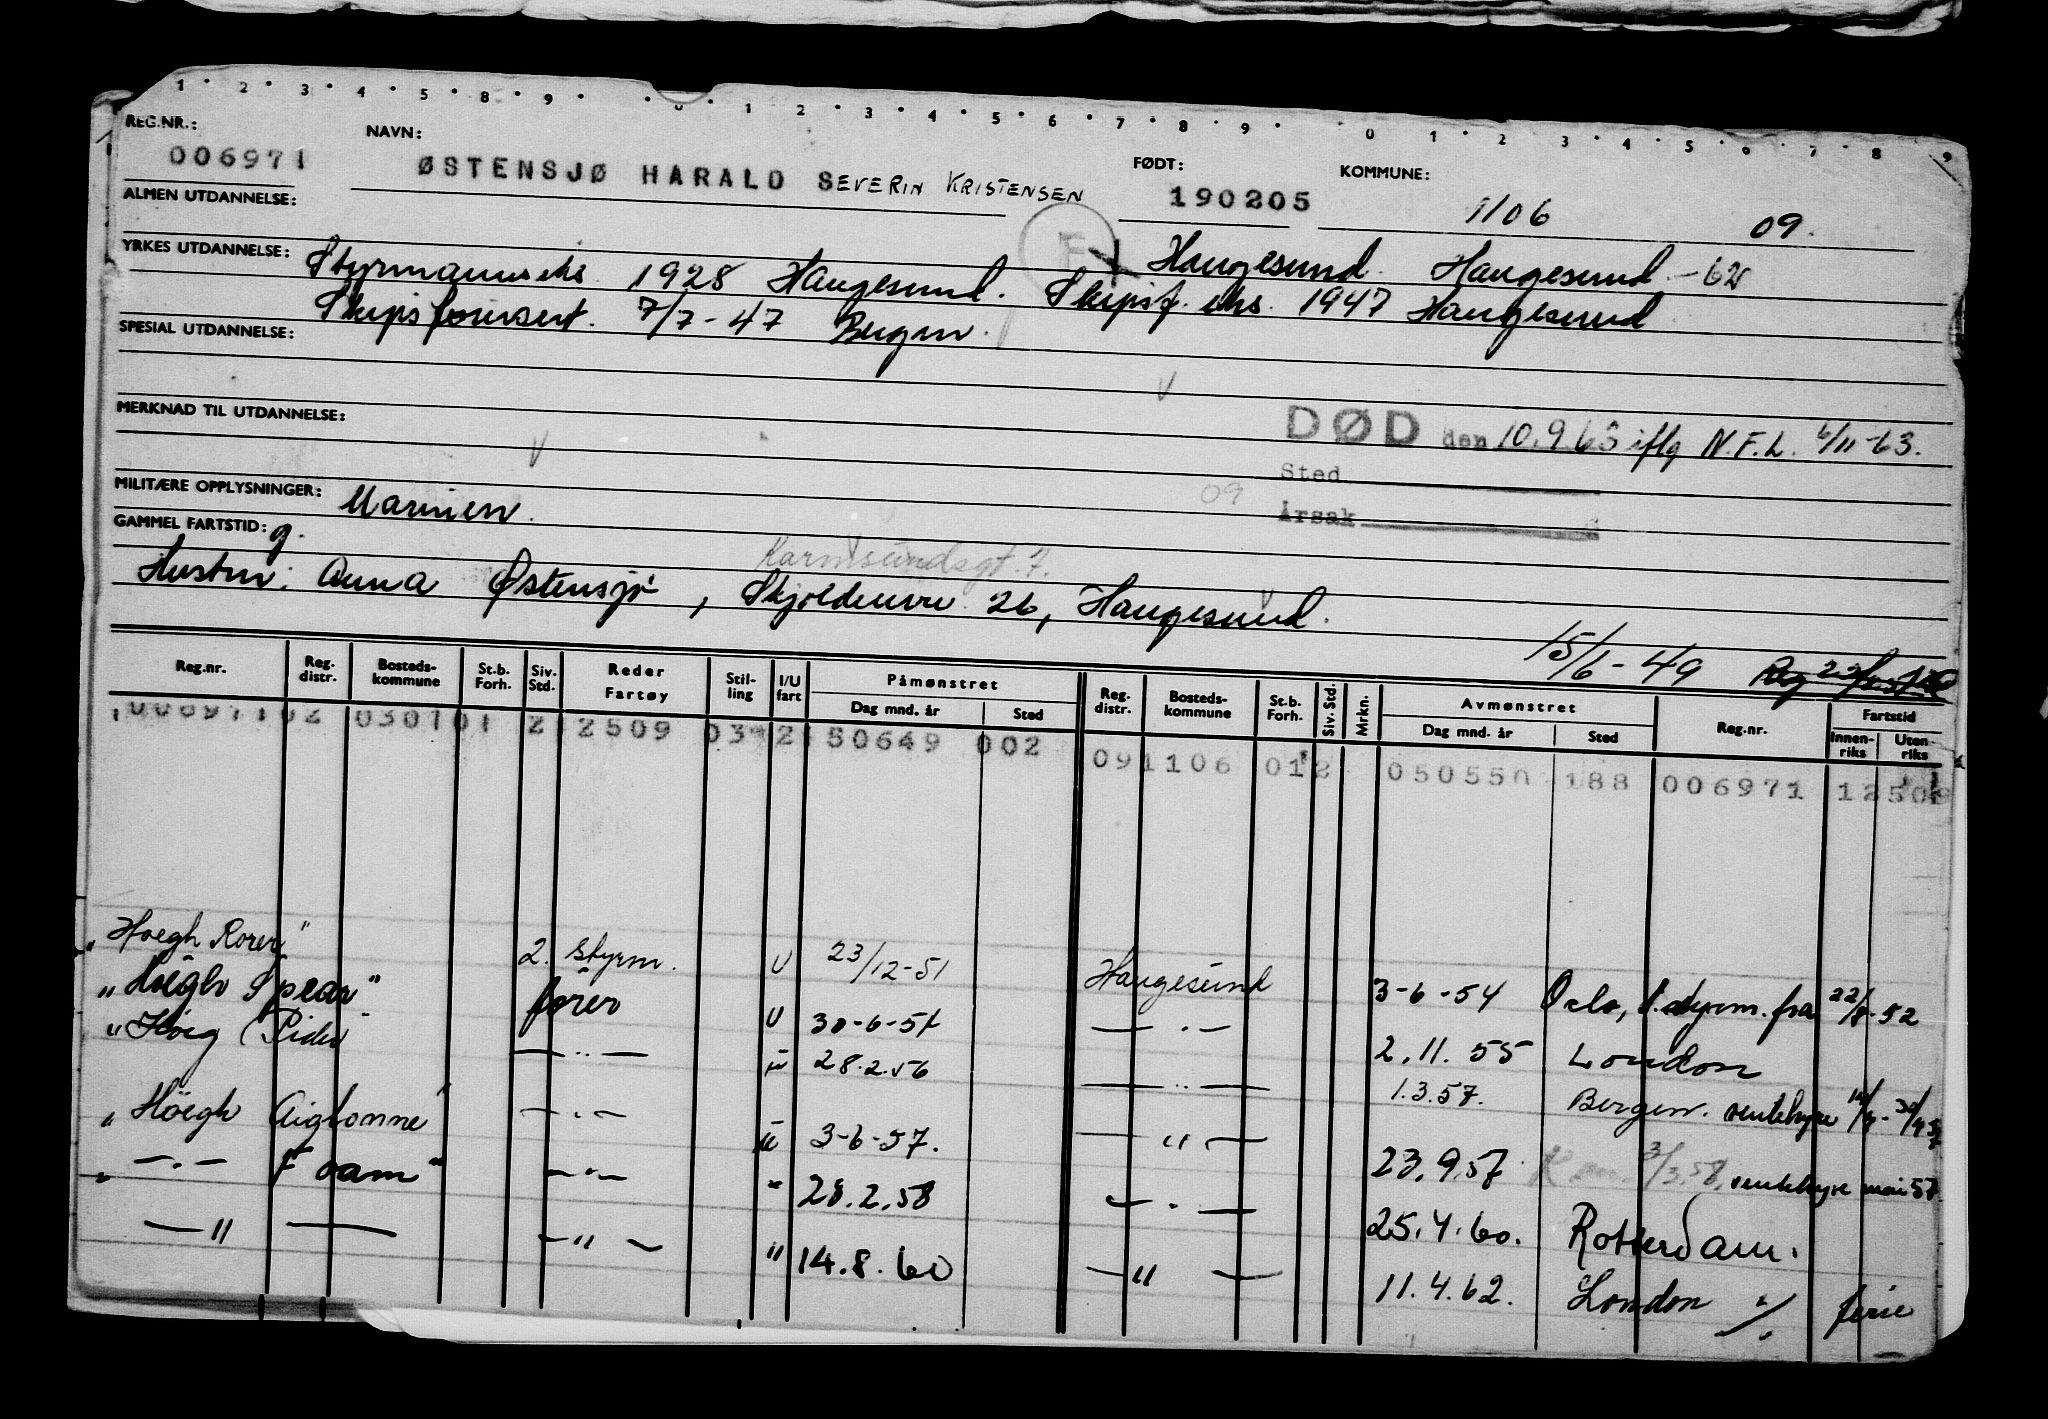 1 · 2 · 3 · 4 · 5 · 8 · 9 · · 0 · 1 · 2 · 3 · 4 · 5 · 6 · 7 · 8 · 9 · 0 · 1 · 2 · 3 · 4 · 5 · 6 · 7 · 8 · 9
REG.NR.: NAVN: FØDT: KOMMUNE:
006971 ØSTENSJØ HARALD SEVERIN KRISTENSEN 190205 1106 09.
ALMEN UTDANNELSE: Haugesund Haugesund -62
YRKES UTDANNELSE: Styrmannseks 1928 Haugesund. Skipsf. eks. 1947 Haugesund
Skipsførersert. 7/7-47 Bergen.
SPESIAL UTDANNELSE:
MERKNAD TIL UTDANNELSE: DØD den 10.9.63 iflg N.F.L. 6/11-63.
Sted
MILITÆRE OPPLYSNINGER: Marinen. 09 Årsak
GAMMEL FARTSTID: g. Karmsundsgt. 7.
Hustru: Anna Østensjø, Skjoldeveien 26, Haugesund.
15/6-49 Reg
Reg.nr. Reg. distr. Bosteds-kommune St.b. Forh. Siv. Std. Reder Fartøy Stil-ling I/U fart Påmønstret Dag mnd. år Sted Reg. distr. Bosteds-kommune St.b. Forh. Siv. Std. Mrkn. Avmønstret Dag mnd. år Sted Reg.nr. Fartstid Innen-riks Uten-riks
00697102 030101 2 2509 039 2 150649 002 091106 012 050550 188 006971 12509
"Hoegh Rover" 2. styrm. U 23/12-51 Haugesund 3-6-54 Oslo, 1. styrm. fra 22/8-52
"Höegh Spear" fører U 30-6-54 — . — 2.11.55 London
"Höeg Rider" — .. — " 28.2.56 — .. — 1.3.57. Bergen. ventehyre
"Höegh Aiglonne" — . — " 3-6-57. — " — 23.9.57 3/3.58, ventehyre mai 57
" — . — Foam" — " — " 28.2.58 — . — 25.4.60. Rotterdam.
— " — — " — " 14.8.60 — " — 11.4.62. London ./. ferie